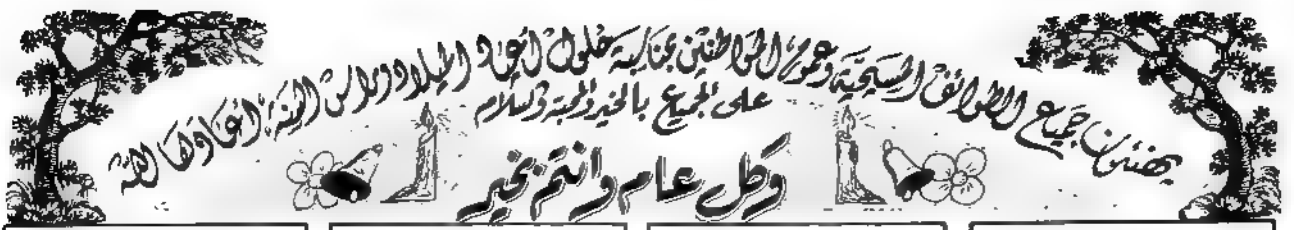 يهنئون جميع الطوائف المسيحية وعموم المواطنين بمناسبة حلول أعياد الميلاد ورأس السنة أعادها الله
على الجميع بالخير والمحبة والسلام
وكل عام وانتم بخير